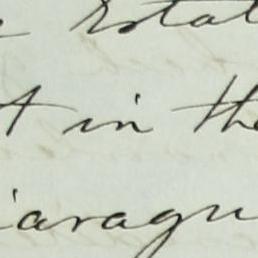 estat
t in the
iaragu